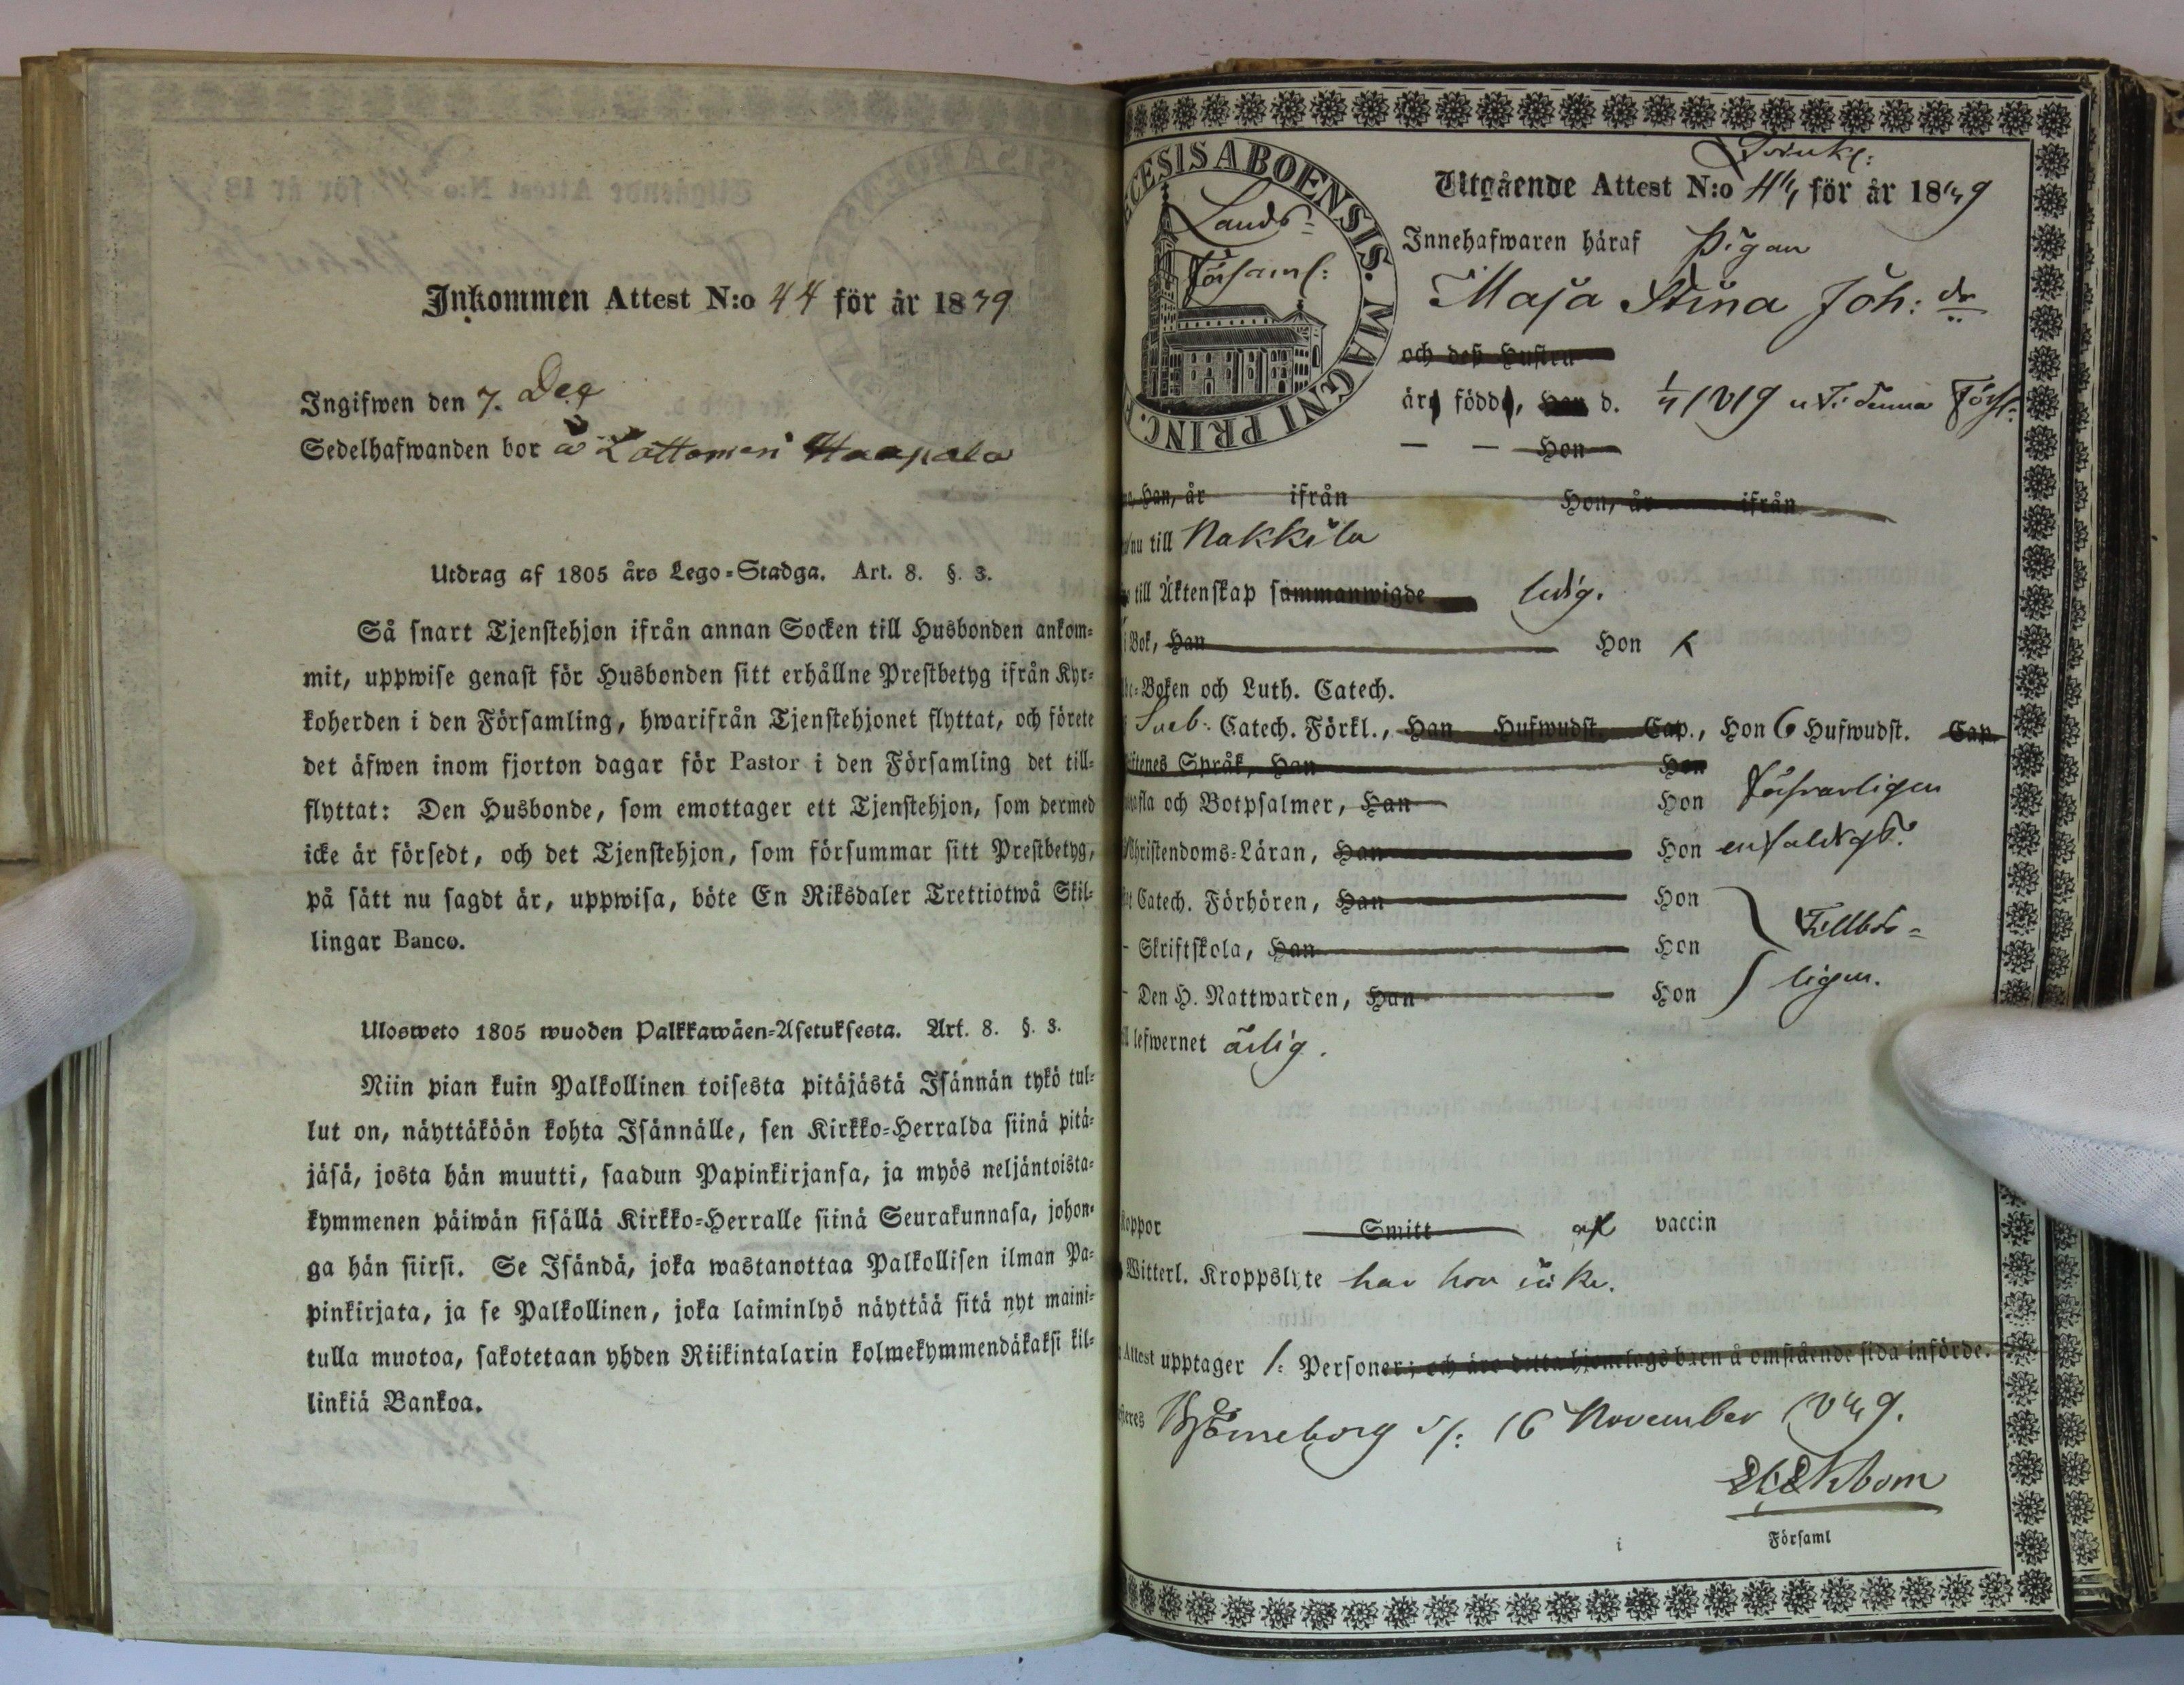 Inkommen Attest N:o 44 för år 1839
Ingifwen den 7. Dec
Sedelhafwanden bor å Lattomeri Haapala
Utdrag af 1805 års Lego-Stadga. Art. 8. §. 3.
Så snart Tjenstehjon ifrån annan Socken till Husbonden ankom-
mit, uppwise genast för Husbonden sitt erhållne Prestbetyg ifrån Kyr-
koherden i den Församling, hwarifrån Tjenstehjonet flyttat, och förete
det äfwen inom fjorton dagar för Pastor i den Församling det till-
flyttat: Den Husbonde, som emottager ett Tjenstehjon, som dermed
icke är försedt, och det Tjenstehjon, som försummar sitt Prestbetyg,
på sätt nu sagdt är, uppwisa, böte En Riksdaler Trettiotwå Skil-
lingar Banco.
Ulosweto 1805 wuoden Palkkawäen-Asetuksesta. Art. 8. §. 3.
Niin pian kuin Palkollinen toisesta pitäjästä Isännän tykö tul-
lut on, näyttäköön kohta Isännälle, sen Kirkko-Herralda siinä pitä-
jäsä, josta hän muutti, saadun Papinkirjansa, ja myös neljäntoista-
kymmenen päiwän sisällä Kirkko-Herralle siinä Seurakunnasa, johon-
ga hän siirsi. Se Isändä, joka wastanottaa Palkollisen ilman Pa-
pinkirjata, ja se Palkollinen, joka laiminlyö näyttää sitä nyt maini-
tulla muotoa, sakotetaan yhden Riikintalarin kolmekymmendäkaksi kil-
linkiä Bankoa.
CESIS ABOENSIS. MAGNI PRINC.
Lands-
Församl:
Utgående Attest N:o 44 för år 1849
Innehafwaren häraf Pigan
Maja Stina Joh: dr
och dess Hustru
är född, Han d. 1/4 1819 uti denna Förs:
Hon
Han, år ifrån Hon, år ifrån
nu till Nakkila
till Äktenskap sammanwigde ledig.
i Bok, Han Hon
-Boken och Luth. Catech.
Sveb: Catech. Förkl., Han Hufwudst. Cap., Hon 6 Hufwudst. Cap.
Språk, Han Hon
och Botpsalmer, Han Hon försvarligen
Christendoms-Läran, Han Hon enfaldigt.
Catech. Förhören, Han Hon
Tillbör-
- Skriftskola, Han Hon
ligen.
- Den H. Nattwarden, Han Hon
lefwernet ärlig.
koppor Smitt af vaccin
Witterl. Kroppslyte har hon icke.
Attest upptager 1: Personer; och äro detta hjonelags barn å omstående sida införde.
Björneborg d: 16 November 1849.
Ekbom
i Församl